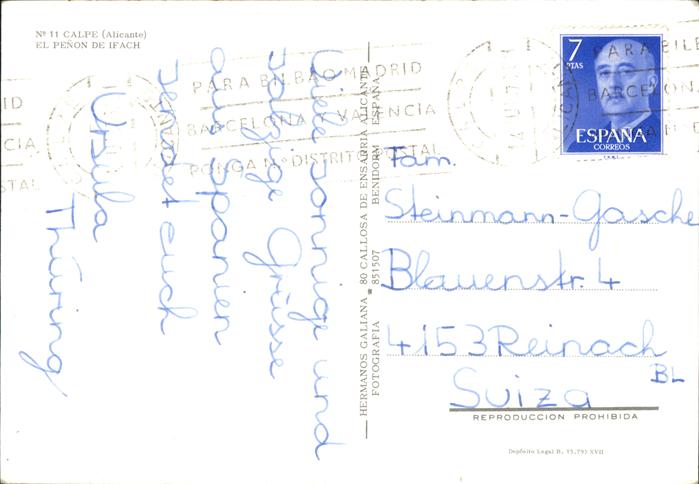 Nº 11 CALPE (Alicante)
EL PEÑON DE IFACH
Viele sonnige und
salzige Grüsse
aus Spanien
sendet euch
Ursula
Thüring
HERMANOS GALIANA - 80 CALLOSA DE ENSARRIA ALICANTE
FOTOGRAFIA 851507 BENIDORM ESPAÑA
PARA BILBAO MADRID
BARCELONA Y VALENCIA
PONGA Nº DISTRITO POSTAL
RID
CIA
STAL
PARA BILB
BARCELONA
7
PTAS
ESPAÑA
CORREOS
Fam.
Steinmann-Gasche
Blauenstr. 4
4153 Reinach
BL
Suiza
REPRODUCCION PROHIBIDA
Depósito Legal B. 15.793 XVII